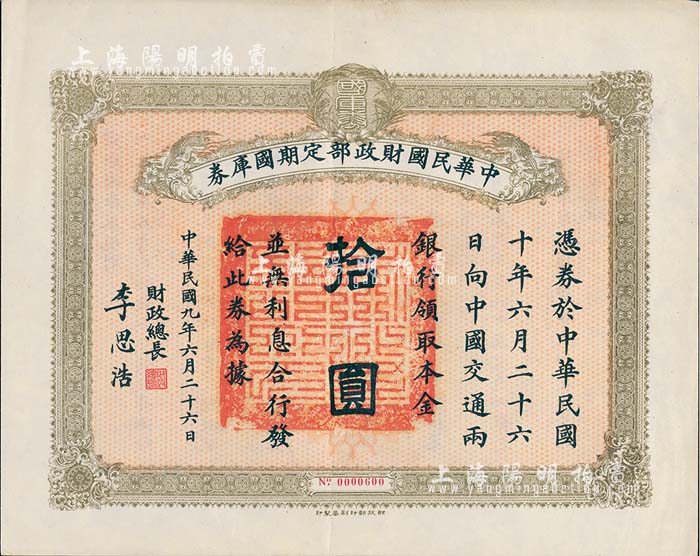 上海陽明拍賣
www.yangmingauction.com
國庫券
中華民國財政部定期國庫券
憑券於中華民國
十年六月二十六
日向中國交通兩
銀行領取本金
拾圓
並無利息合行發
給此券為據
中華民國九年六月二十六日
財政總長
李思浩
No 0000600
財政部印刷局製印
上海陽明拍賣
www.yangmingauction.com
上海陽明拍賣
www.yangmingauction.com